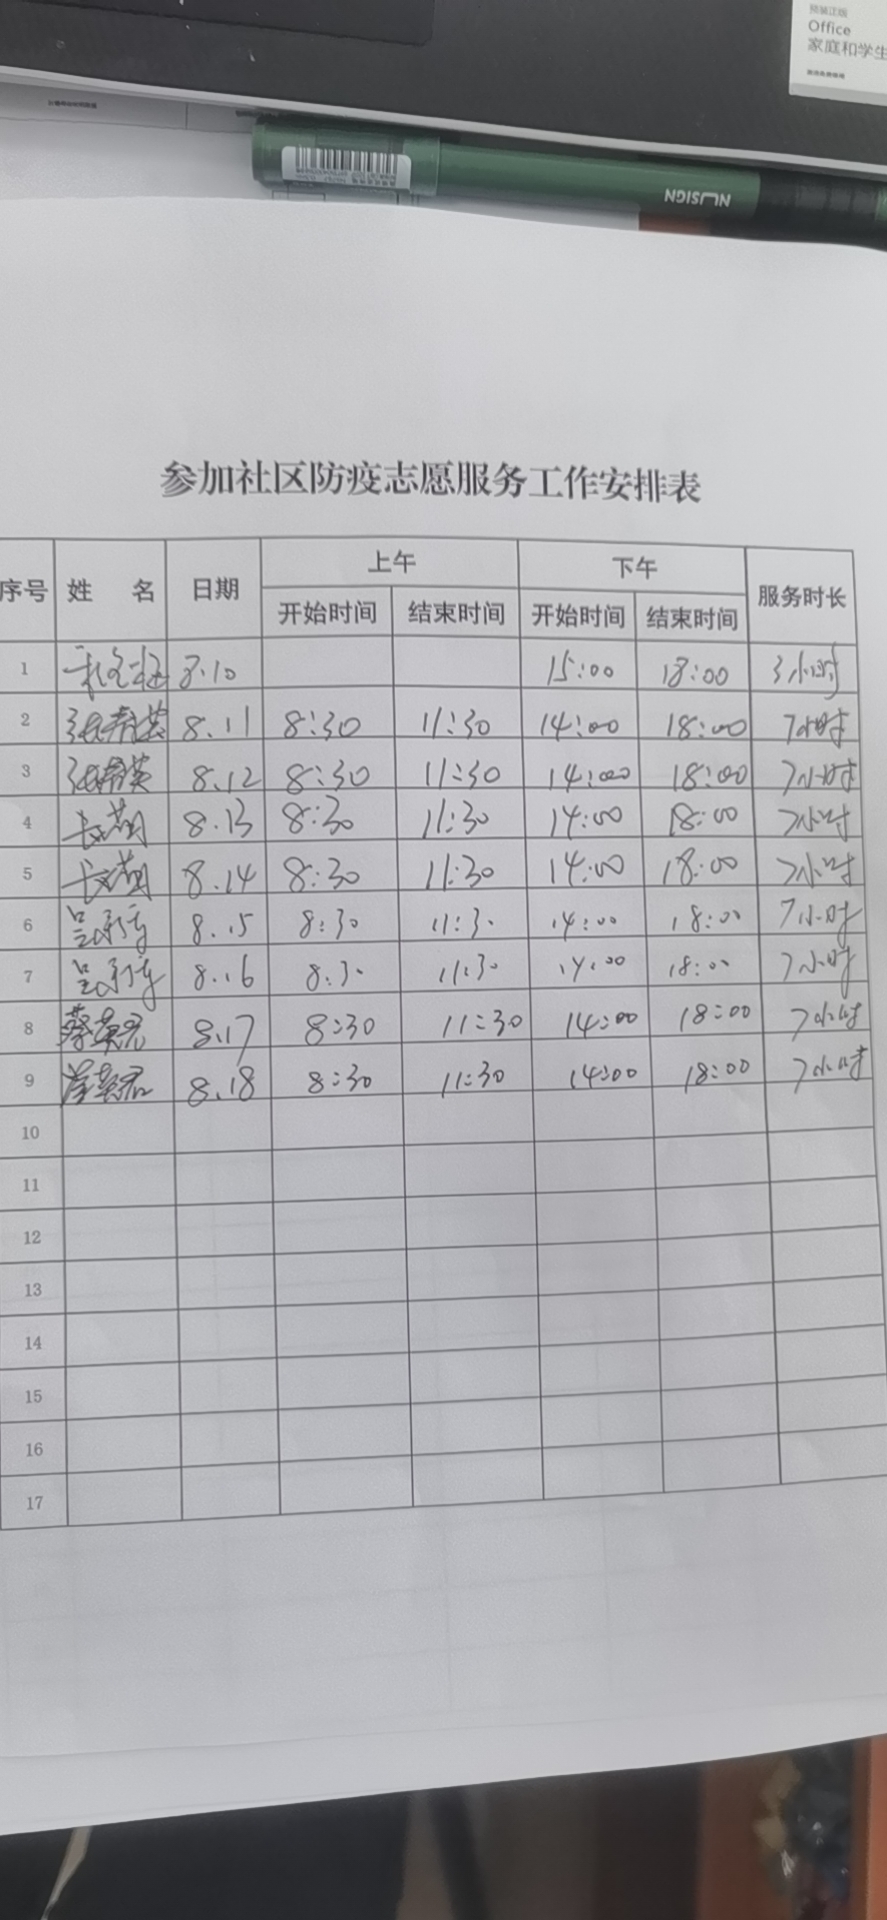 预装正版
Office
家庭和学生
NUSIGN
参加社区防疫志愿服务工作安排表
序号 姓 名 日期 上午 下午 服务时长
开始时间 结束时间 开始时间 结束时间
1 8.10 15:00 18:00 3小时
2 8.11 8:30 11:30 14:00 18:00 7小时
3 8.12 8:30 11:30 14:00 18:00 7小时
4 8.13 8:30 11:30 14:00 18:00 7小时
5 8.14 8:30 11:30 14:00 18:00 7小时
6 8.15 8:30 11:30 14:00 18:00 7小时
7 8.16 8:30 11:30 14:00 18:00 7小时
8 8.17 8:30 11:30 14:00 18:00 7小时
9 8.18 8:30 11:30 14:00 18:00 7小时
10
11
12
13
14
15
16
17